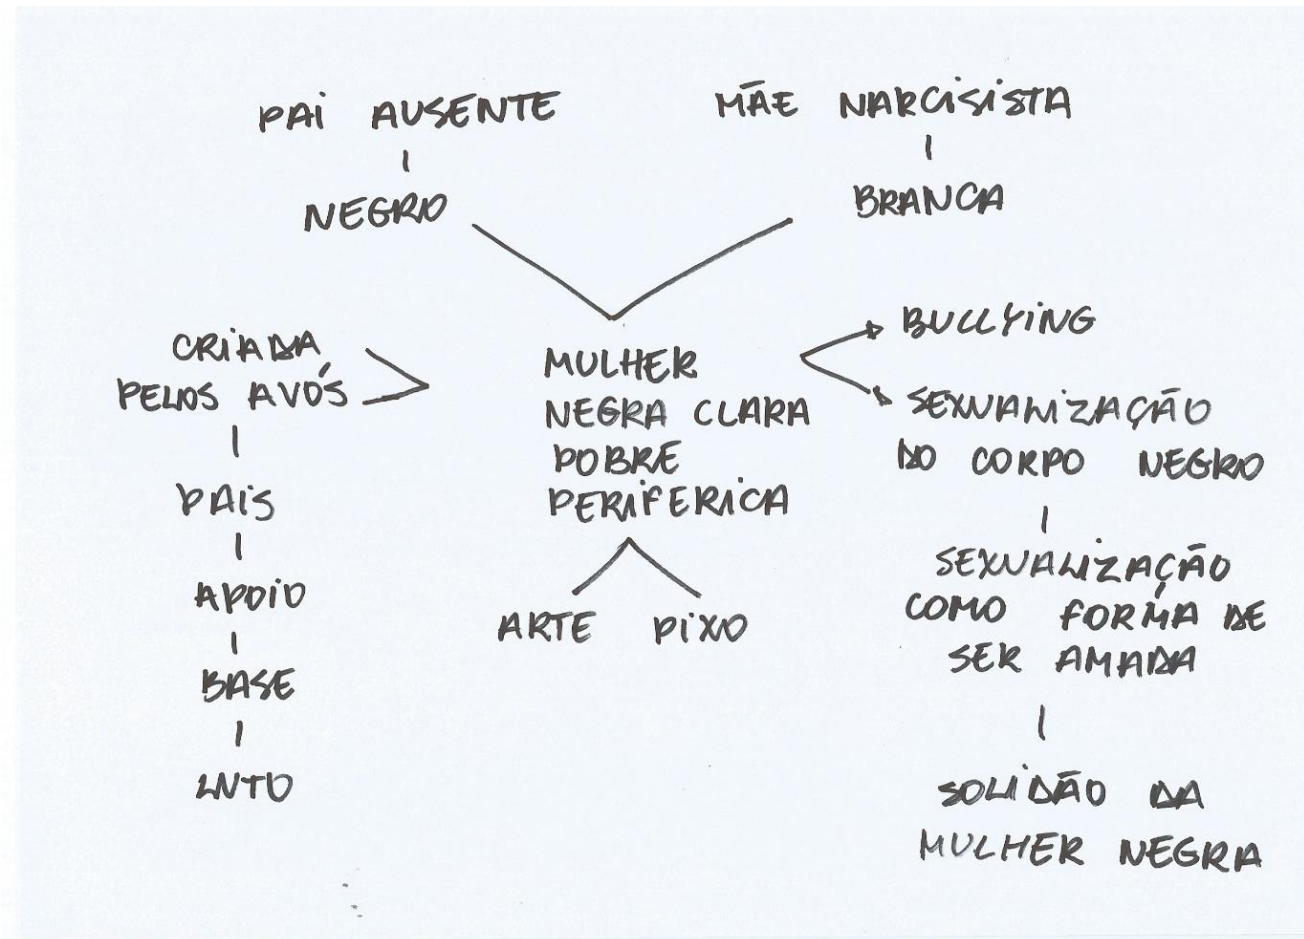 PAI AUSENTE
MÃE NARCISISTA
NEGRO
BRANCA
CRIADA
PELOS AVÓS
PAIS
APOIO
BASE
LUTO
MULHER
NEGRA CLARA
POBRE
PERIFERICA
ARTE PIXO
BULLYING
SEXUALIZAÇÃO
DO CORPO NEGRO
SEXUALIZAÇÃO
COMO FORMA DE
SER AMADA
SOLIDÃO DA
MULHER NEGRA